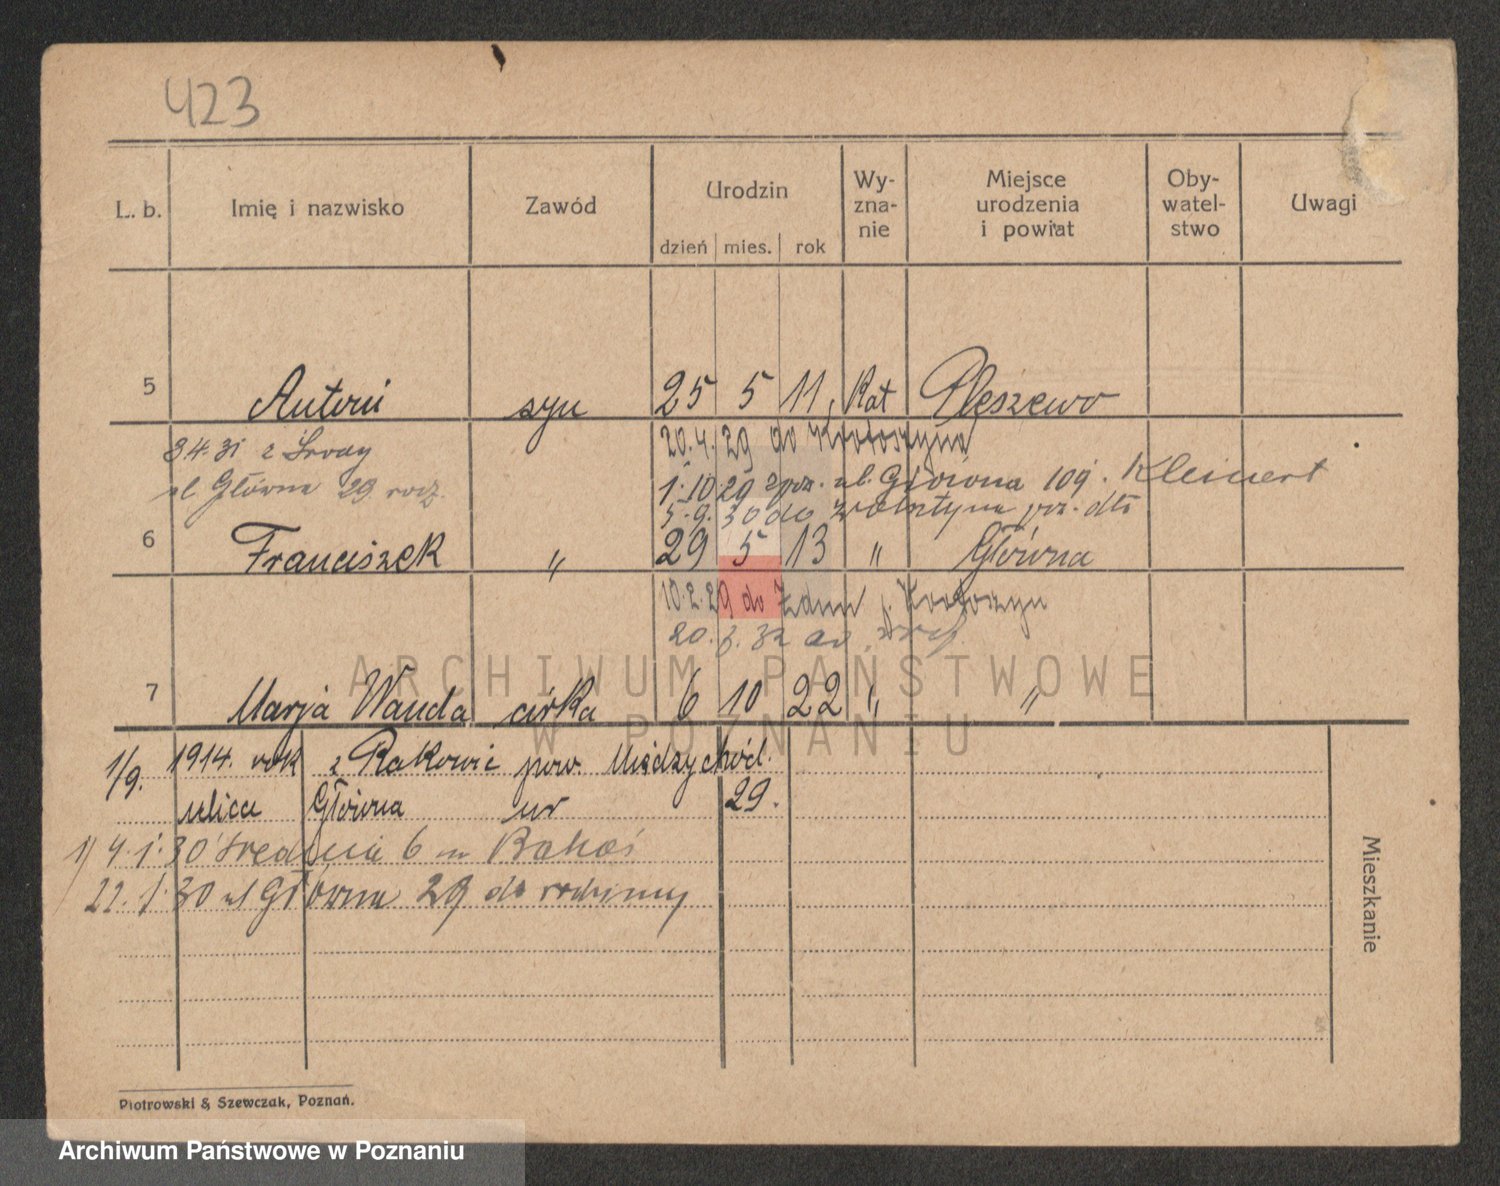 423
L. b. Imię i nazwisko Zawód Urodzin dzień mies. rok Wy-zna-nie Miejsce urodzenia i powiat Oby-watel-stwo Uwagi
5 Antoni syn 25 5 11 Kat Pleszewo
20.4.29 do Krotoszyna
34.31 z Środy
1.10.29 ul. Główna 109. Kleinert
ul Główna 29 rodz.
5.9.30 do Wolsztyna
6 Franciszek " 29 5 13 " Główna
10.2.29 do Zdun p. Krotoszyn
20. 32
ARCHIWUM PAŃSTWOWE
7 Marja Wanda córka 6 10 22 " "
W POZNANIU
1/9. 1914. rok z Rakowic pow. Międzychód.
ulica Główna nr 29.
1) 4.1.30 Średnia 6 m
22.1.30 ul Główna 29 do rodziny
Mieszkanie
Piotrowski & Szewczak, Poznań.
Archiwum Państwowe w Poznaniu